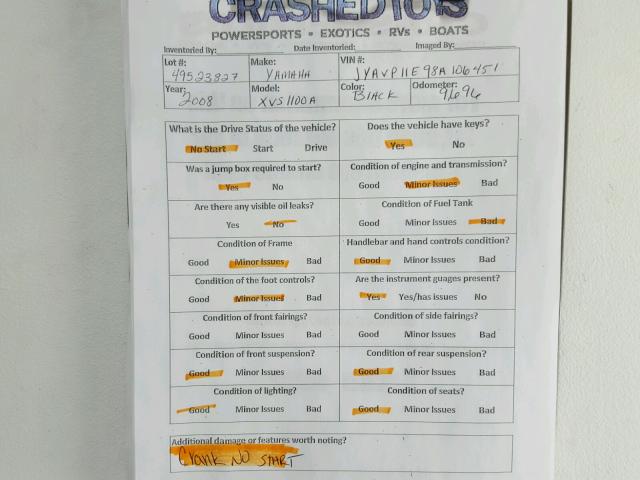 CRASHEDTOYS
POWERSPORTS • EXOTICS • RVs • BOATS
Inventoried By: Date Inventoried: Imaged By:
Lot #: 49523827 Make: YAMAHA VIN #: JYAVP11E98A106451
Year: 2008 Model: XVS1100A Color: BlACK Odometer: 9696
What is the Drive Status of the vehicle? Does the vehicle have keys?
No Start Start Drive Yes No
Was a jump box required to start? Condition of engine and transmission?
Yes No Good Minor Issues Bad
Are there any visible oil leaks? Condition of Fuel Tank
Yes No Good Minor Issues Bad
Condition of Frame Handlebar and hand controls condition?
Good Minor Issues Bad Good Minor Issues Bad
Condition of the foot controls? Are the instrument guages present?
Good Minor Issues Bad Yes Yes/has issues No
Condition of front fairings? Condition of side fairings?
Good Minor Issues Bad Good Minor Issues Bad
Condition of front suspension? Condition of rear suspension?
Good Minor Issues Bad Good Minor Issues Bad
Condition of lighting? Condition of seats?
Good Minor Issues Bad Good Minor Issues Bad
Additional damage or features worth noting?
Crank NO START